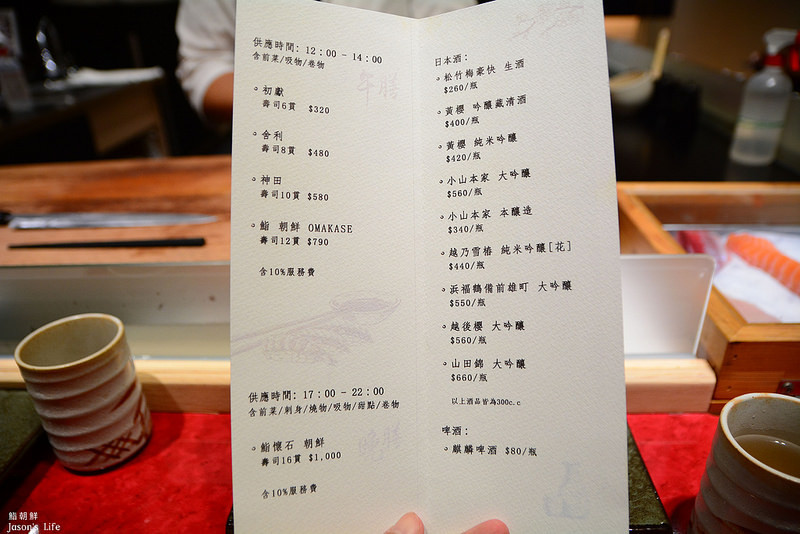 供應時間: 12:00 - 14:00
含前菜/吸物/卷物
午膳
初獻
壽司6貫 $320
舍利
壽司8貫 $480
神田
壽司10貫 $580
鮨 朝鮮 OMAKASE
壽司12貫 $790
含10%服務費
供應時間: 17:00 - 22:00
含前菜/刺身/燒物/吸物/甜點/卷物
晚膳
鮨懷石 朝鮮
壽司16貫 $1,000
含10%服務費
日本酒:
松竹梅豪快 生酒
$260/瓶
黃櫻 吟釀蔵清酒
$400/瓶
黃櫻 純米吟釀
$420/瓶
小山本家 大吟釀
$560/瓶
小山本家 本釀造
$340/瓶
越乃雪椿 純米吟釀[花]
$440/瓶
浜福鶴備前雄町 大吟釀
$550/瓶
越後櫻 大吟釀
$560/瓶
山田錦 大吟釀
$660/瓶
以上酒品皆為300c.c
啤酒:
麒麟啤酒 $80/瓶
鮨朝鮮
Jason's Life